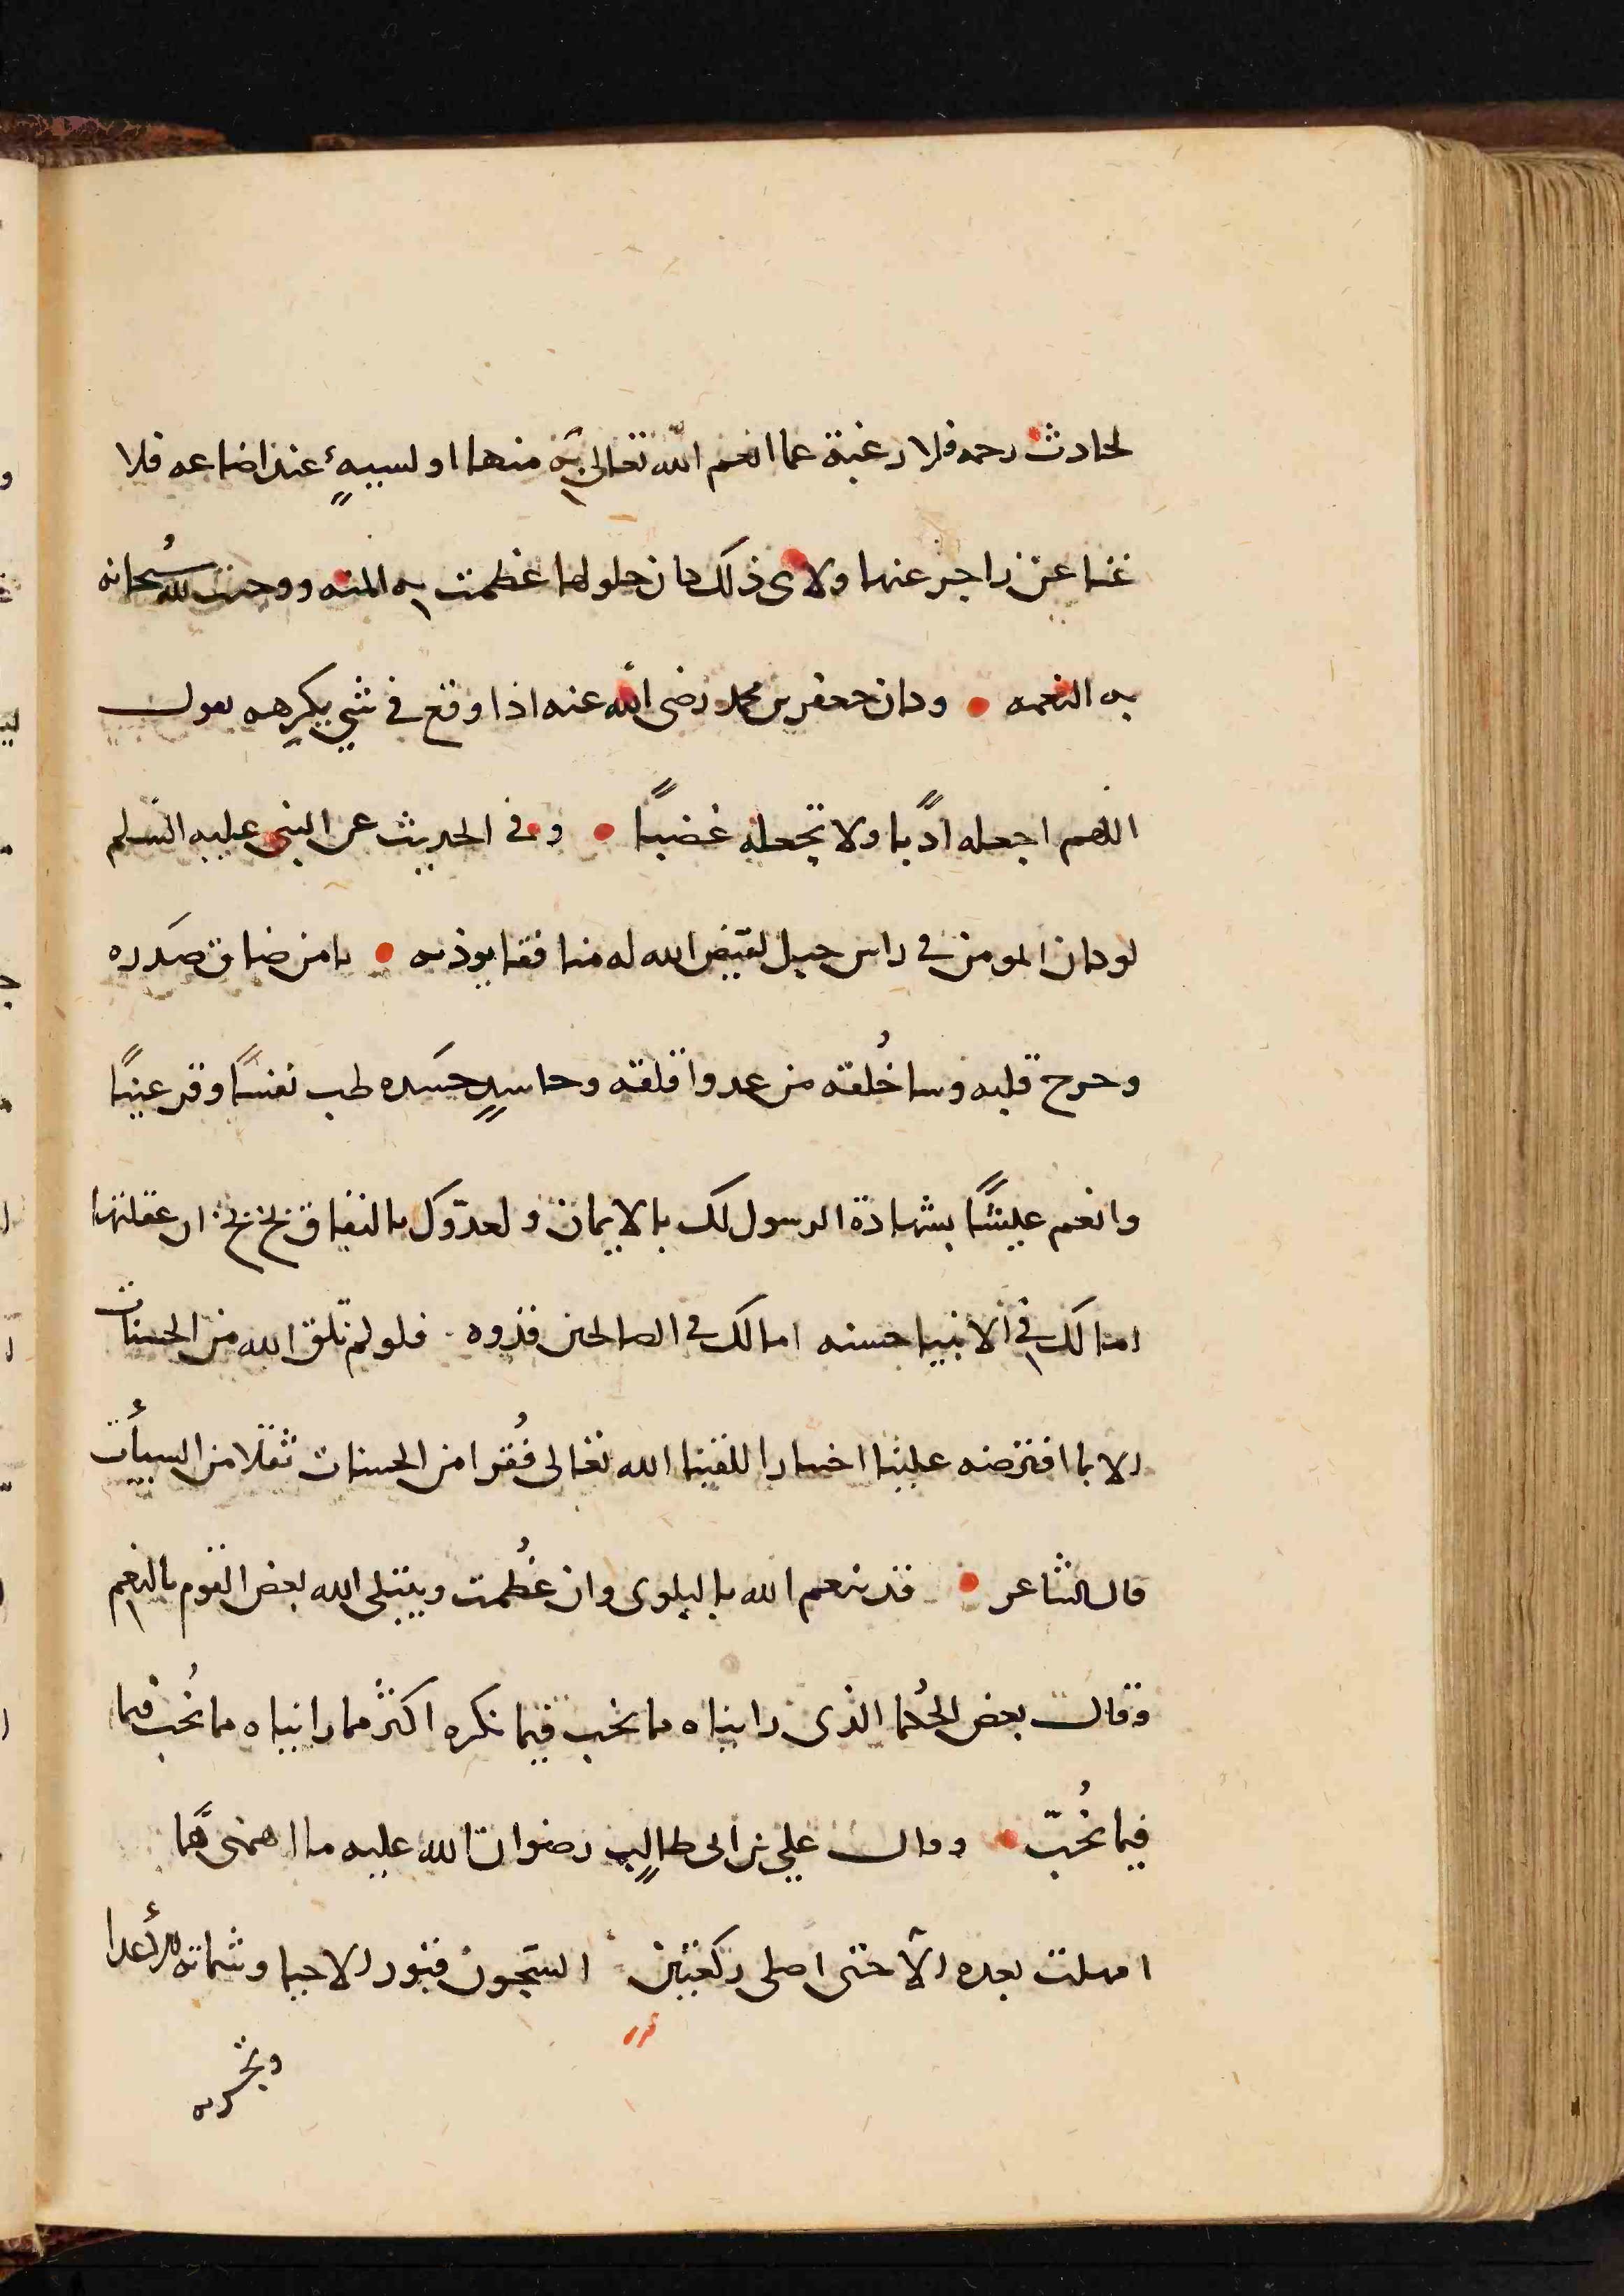 لحادث رحمه فلا رغبة عما انعم الله تعالى به منها او لسيبهٍ عند اضاعه فلا
غنا عن زاجر عنها ولاى ذلك كان حلولها عظمت به المنه ووجبت لله سُبحانه
به النعمه • وكان جعفر بن محمد رضى الله عنه اذا وقع في شي يكرهه يقول
اللهم اجعله ادًبا ولا تجعله غضبًا • وفي الحديث عن النبي عليه السلم
لو كان المومن في راس جبل لقيض الله له منافقا يوذيه • يا من ضاق صَدره
وحرج قلبه وسا خُلقه من عدو اقلقه وحاسدٍ حسَده طب نفسًا وقر عينًا
وانعم عيشًا بشهادة الرسول لك بالايمان ولعدوّك بالنفاق بخ بخ ان عقلتها
اما لك في الانبيا حسنه اما لك في الصالحين قدوه · فلو لم تلق الله من الحسنات
الا بما افترضه علينا اختيارا للقينا الله تعالى فُقرا من الحسنات ثقلا من السيأت
قال الشاعر • قد ينعم الله بالبلوى وان عظُمت ويبتلى الله بعض القوم بالنعم
وقال بعض الحُكما الذى رايناه مما نحب فيما نكره اكثر مما رايناه مما نُحب فيما
فيما نُحبّ • وقال علي بن ابى طالبٍ رضوان الله عليه ما اهمنى هَمًّا
امهلت بعده الا حتى اصلى ركعتين السجون قبور الاحيا وشماته الاعدا
وتجربه